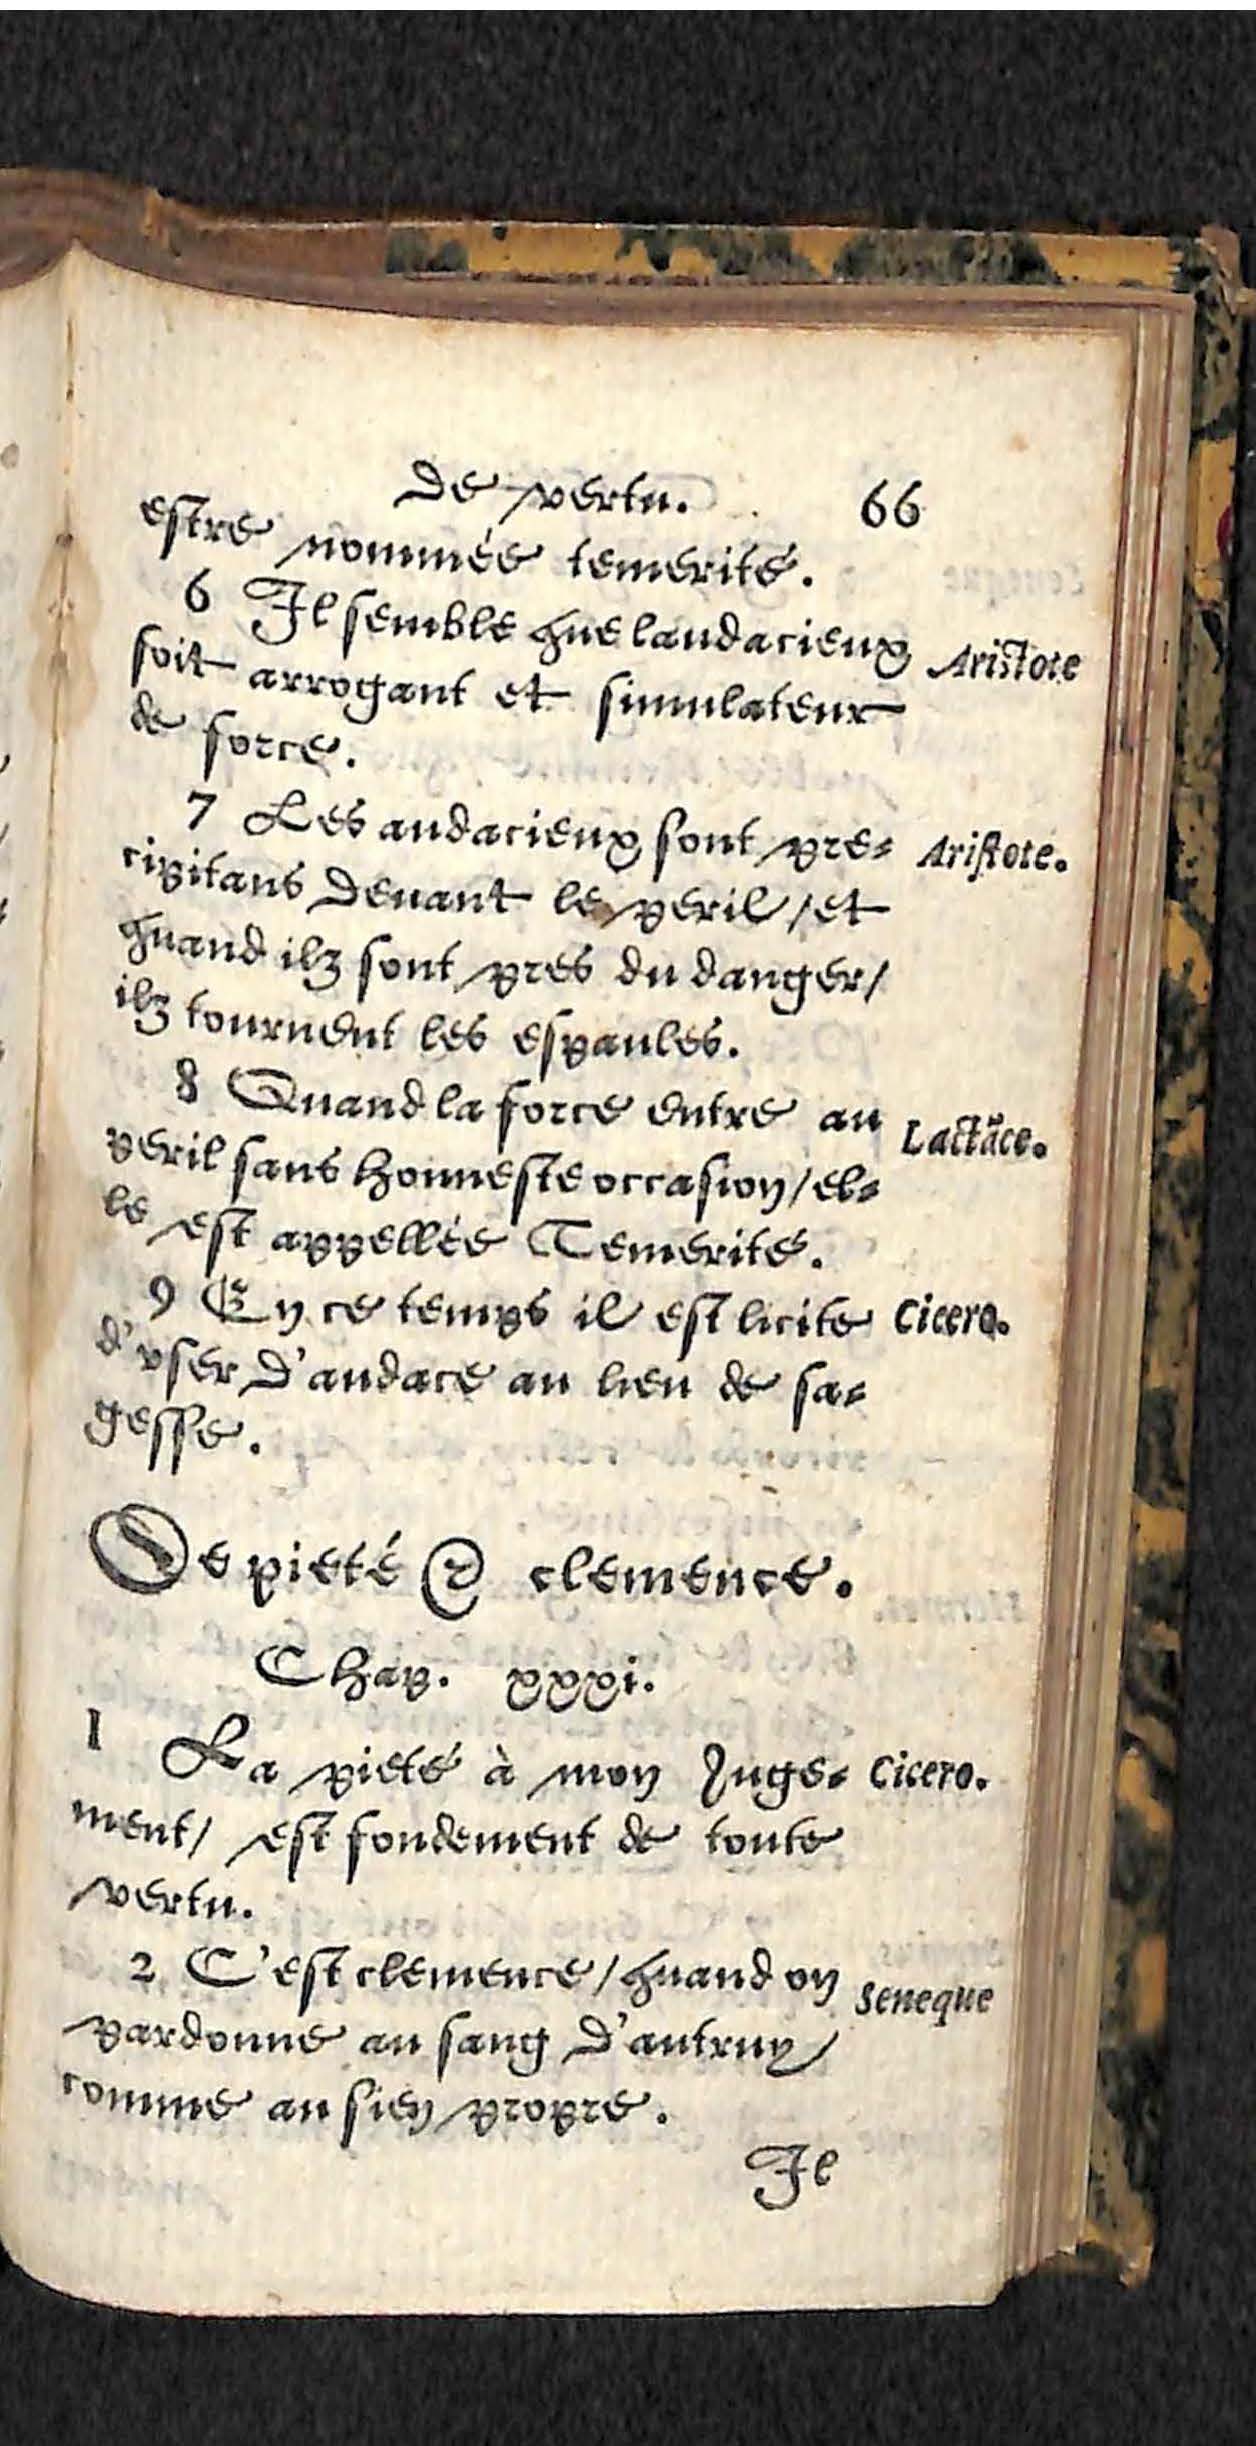 De vertu. 66
estre nommée temerité.
6 Il semble que laudacieux Aristote
soit arrogant et simulateur
de force.
7 Les audacieux sont pre- Aristote.
cipitans deuant le peril / et
quand ilz sont pres du danger /
ilz tournent les espaules.
8 Quand la force entre au Lactãce.
peril sans honneste occasion / el-
le est appellée Temerité.
9 En ce temps il est licite Cicero.
d'vser d'audace au lieu de sa-
gesse.
De pieté & clemence.
Chap. xxxi.
1 La pieté à mon Iuge- Cicero.
ment / est fondement de toute
vertu.
2 C'est clemence / quand on Seneque
pardonne au sang d'autruy /
comme au sien propre.
Il